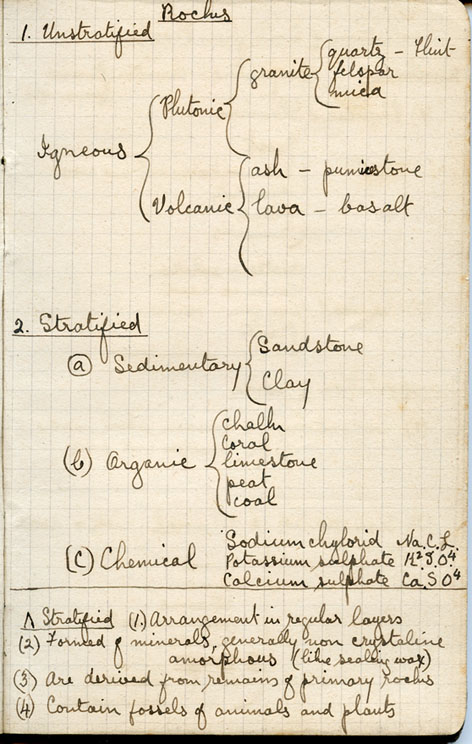 Rocks
1. Unstratified
Igneous { Plutonic { granite { quartz - Flint
felspar
mica
Volcanic { ash - pumicestone
lava - basalt
2. Stratified
(a) Sedimentary { Sandstone
Clay
(b) Organic { chalk
coral
limestone
peat
coal
(C) Chemical Sodium chylorid Na.C.L.
Potassium sulphate K2.S.O4
Calcium sulphate Ca.SO4
Λ Stratified (1) Arrangement in regular layers
(2) Formed of minerals, generally non crystaline
amorphous (like sealing wax)
(3) Are derived from remains of primary rocks
(4) Contain fossels of animals and plants